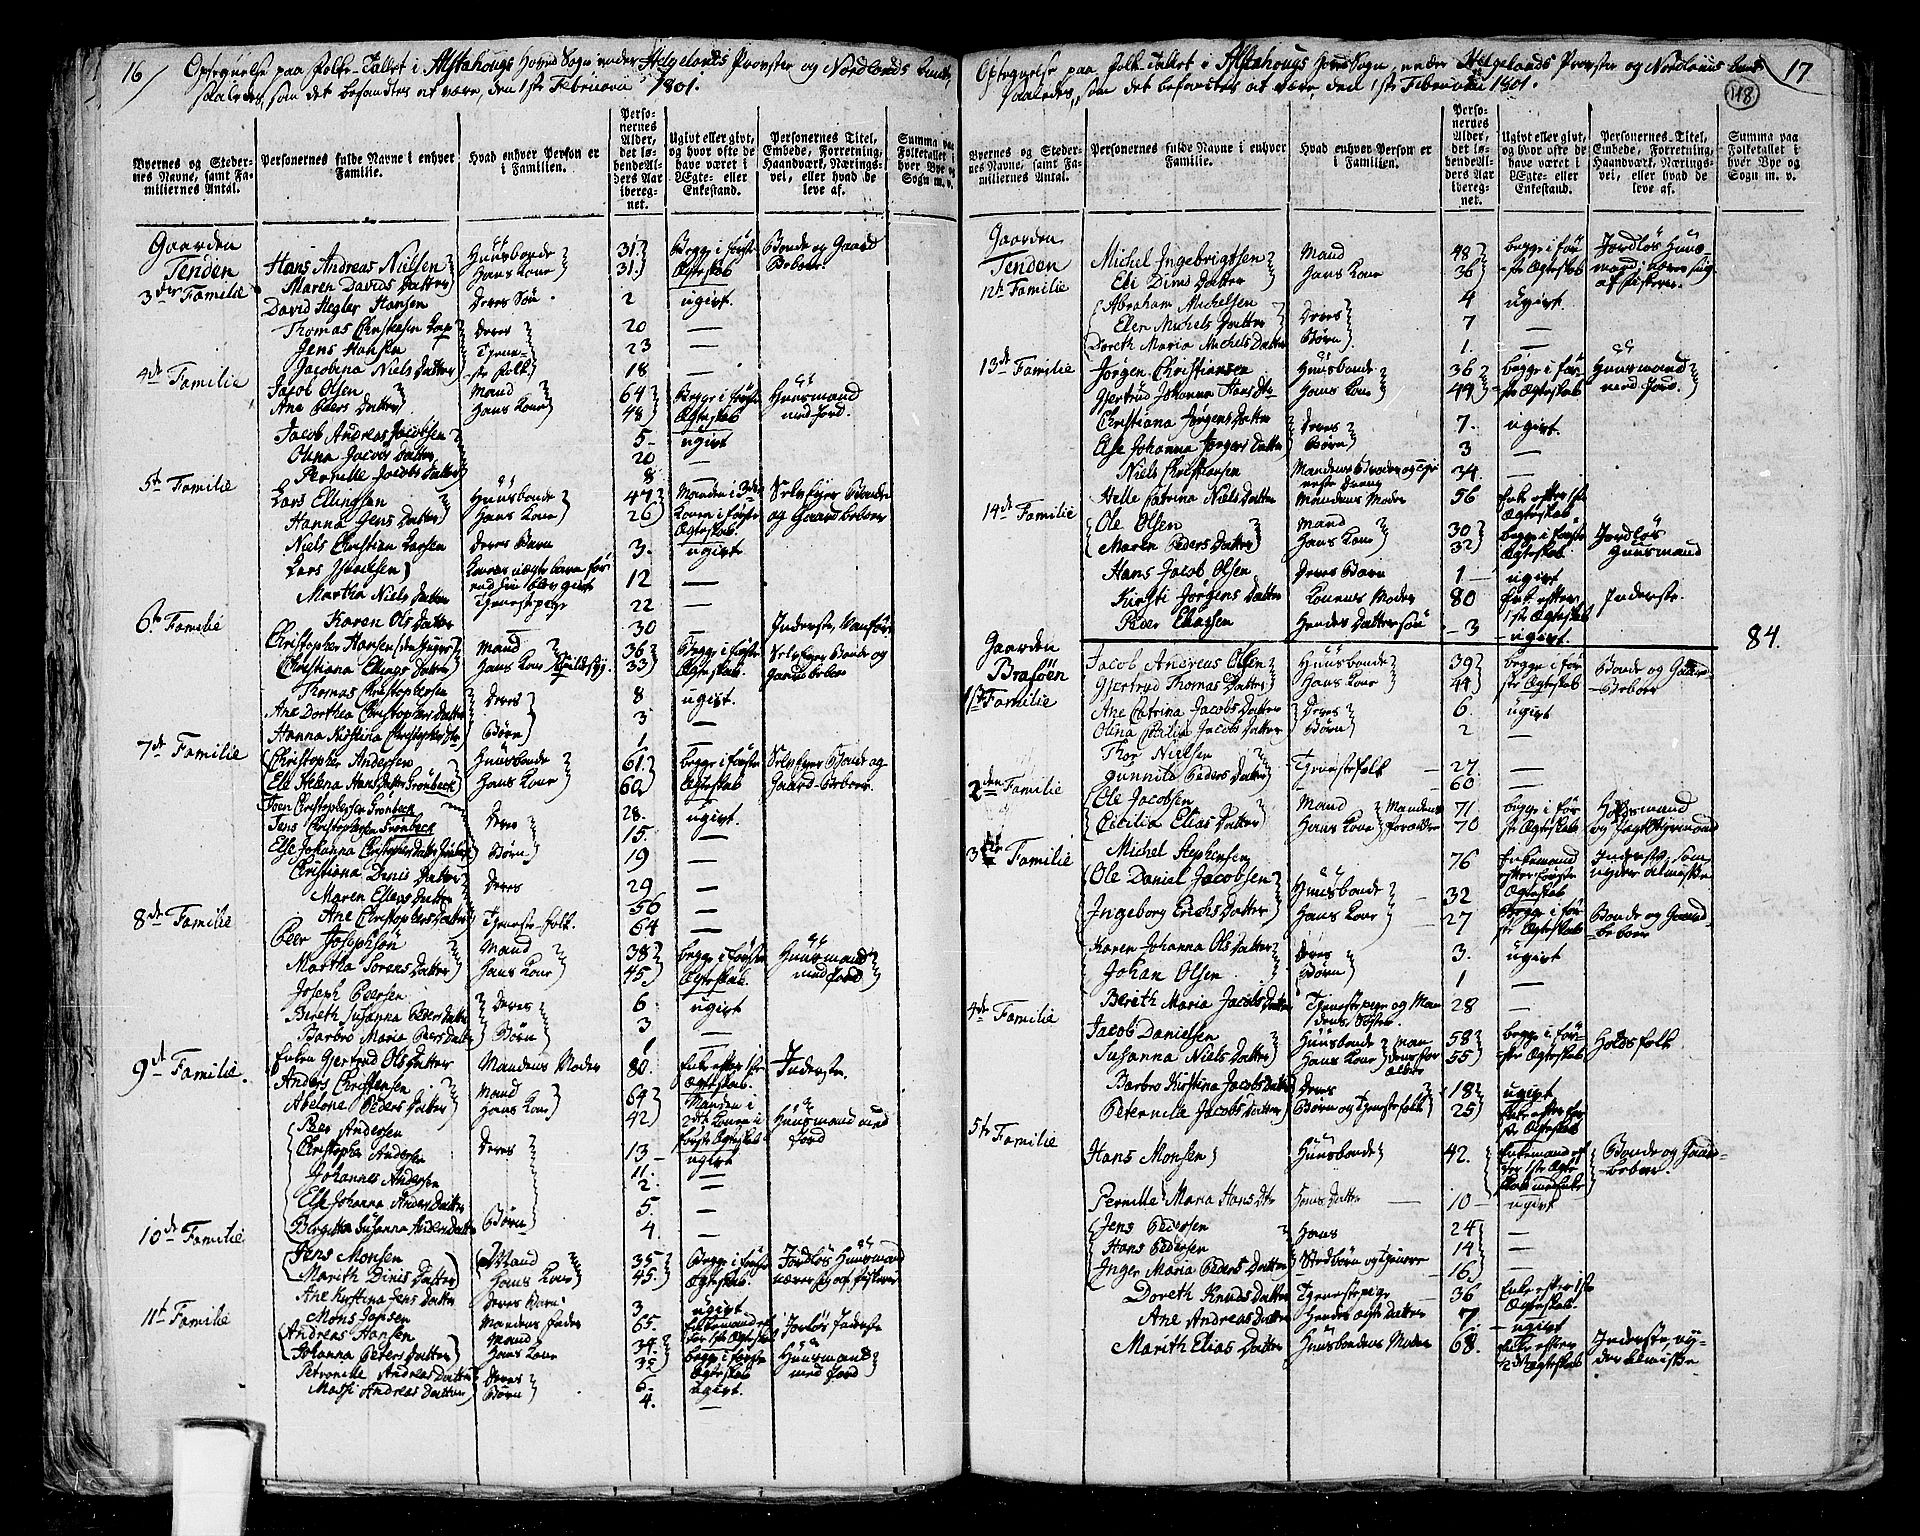 16
Optegnelse paa Folke-Tallet i Alstahougs Hoved Sogn under Helgelands Provstie og Nordlands Amt,
saaledes, som det befandtes at være, den 1ste Februarii 1801.
Byernes og Stedernes Navne, samt Familiernes Antal.
Personernes fulde Navne i enhver Familie.
Hvad enhver Person er i Familien.
Personernes Alder, det løbende Alders Aar iberegnet.
Ugivt eller givt, og hvor ofte de have været i Ægte- eller Enkestand.
Personernes Titel, Embede, Forretning, Haandværk, Næringsvei, eller hvad de leve af.
Summa paa Folketallet i hver Bye og Sogn m. v.
Gaarden Tenden
3die Familie
Hans Andreas Nielsen Huusbonde 31. Begge i første Ægteskab Bonde og Gaard Beboer
Maren Davids Datter Hans Kone 31.
David Hegler Hansen Deres Søn 2 ugivt.
Thomas Christensen Deres Tjeneste Folk 20 —
Jens Hansen 23 —
Jacobina Niels Datter 18 —
4de Familie
Jacob Olsen Mand 64 Begge i første Ægteskab Huusmand med Jord.
Ane Peers Datter Hans Kone 48
Jacob Andreas Jacobsen 5 ugivt
Olina Jacobs Datter 20 —
Pernille Jacobs Datter 8 —
5te Familie
Lars Ellingsen Huusbonde 47 Manden i 3die Konen i første Ægteskab Selveyer Bonde og Gaardbeboer
Hanna Jens Datter Hans Kone 26
Niels Christian Larsen Deres Barn 3. ugivt
Lars Konens uægte barn 12 —
Martha Niels Datter Tjenestepige 22 —
Karen Ols Datter 30 — Inderste, Vanfør
6te Familie
Christopher Hansen Mand 36 Begge i første Ægteskab Selveyer Bonde og Gaardbeboer
Christiana Ellings Datter Hans Kone 33
Thomas Christophersen Deres Børn 8 ugivt.
Ane Dorthea Christophers Datter 3 —
Hanna Kirstina Christophers Dtr 1 —
7de Familie
Christopher Andersen Huusbonde 61. begge i første Ægteskab Selveyer Bonde og Gaard-Beboer
Else Helena Hans Datter Grönbeck Hans Kone 60
Christophersen Grönbeck Deres Børn 28. ugivt.
Jens Christophersen Grönbeck 15. —
Else Johanna Christophers Datter 19 —
Christiana Dinis Datter Deres Tjeneste-folk. 29 —
Maren Ellers Datter 56 —
Ane Christophers Datter 64 —
8de Familie
Peer Josephsön Mand 38 begge i første Ægteskab Huusmand med Jord
Martha Sörens Datter Hans Kone 45
Joseph Peersen Deres Børn 6 ugivt
Bereth Susanna Peders Datter 3 —
Barbro Maria Peers Datter 1
Enken Gjertrud Ols Datter Mandens Moder 80. Enke efter 1ste Ægteskab. Inderste.
9de Familie.
Anders Christensen Mand 64 Manden i 2det Konen i første Ægteskab Huusmand med Jord
Abelone Peders Datter Hans Kone 42
Peer Andersen Deres Børn 13 ugivt
Christopher Andersen 11. —
Johannes Andersen 2. —
Else Johanna Anders Datter 5. —
Birgitta Susanna Anders Datter 4. —
10de Familie
Jens Monsen Mand 35 Begge i første Ægteskab Jordløs Huusmand nærer sig af fiskerie
Marith Dinis Datter Hans Kone 45.
Ane Kirstina Jens Datter Deres Barn 3 ugivt
Mons Jensen Mandens Fader 65. Enkemand efter 1ste Ægteskab Jordløs Inderste
11te Familie
Andreas Hansen Mand 34. begge i første Ægteskab Huusmand med Jord
Johanna Peters Datter Hans Kone
Petronelle Andreas Datter Deres Børn 6. ugivt.
Massi Andreas Datter 4. —
17
118
Optegnelse paa Folketallet i Alstahougs Hoved Sogn, under Helgelands Provstie og Nordlands Amt
saaledes, som det befandtes at være, den 1ste Februarii 1801.
Byernes og Stedernes Navne, samt Familiernes Antal.
Personernes fulde Navne i enhver Familie.
Hvad enhver Person er i Familien.
Personernes Alder, det løbende Alders Aar iberegnet.
Ugivt eller givt, og hvor ofte de have været i Ægte- eller Enkestand.
Personernes Titel, Embede, Forretning, Haandværk, Næringsvei, eller hvad de leve af.
Summa paa Folketallet i hver Bye og Sogn m. v.
Gaarden Tenden
12te Familie
Michel Ingebrigtsen Mand 48 begge i første Ægteskab Jordløs Huusmand nærer sig af fiskerie.
Eli Dinis Datter Hans Kone 36
Abraham Michelsen Deres Børn 4 ugivt.
Elen Michels Datter 7 —
Doreth Maria Michels Datter 1. —
13de Familie
Jørgen Christiansen Huusbonde 36 begge i første Ægteskab Huusmand med Jord.
Gjertrud Johanna Hans Dtr Hans Kone 44
Christiana Jørgens Datter Deres Børn 7. ugivt.
Else Johanna Jørgens Datter 3 —
Niels Christiansen Mandens Broder og tjeneste Dreng 34. —
Helle Catrina Niels Datter Mandens Moder 56 Enke efter 1ste Ægteskab
14de Familie
Ole Olsen Mand 30 begge i første Ægteskab. Jordløs Huusmand
Maren Peders Datter Hans Kone 32
Hans Jacob Olsen Deres Barn 1 — ugivt
Kirsti Jørgens Datter Konens Moder 80 Enke efter 1ste Ægteskab Inderste.
Peder Eliassen Hendes Dattersøn 3 — ugivt.
84.
Gaarden Brasöen
1ste Familie
Jacob Andreas Olsen Huusbonde 39 begge i første Ægteskab Bonde og Gaard-Beboer
Gjertrud Thomas Datter Hans Kone 44
Ane Catrina Jacobs Datter Deres Børn 6. ugivt
Olina Cicilia Jacobs Datter 2 —
Thor Nielsen Tjenestefolk 27. —
Gunnild Peders Datter 60 —
2den Familie
Ole Jacobsen Mand Mandens Forældre 71 begge i første Ægteskab og Jagt Styrmand
Cicilia Elias Datter Hans Kone 70
Michel Stephensen 76 Enkemand efter første Ægteskab Inderste, som nyder Almisse
3die Familie
Ole Daniel Jacobsen Huusbonde 32 Begge i første Ægteskab Bonde og Gaardbeboer
Ingeborg Erichs Datter Hans Kone 27
Karen Johanna Ols Datter Deres Børn 3. ugivt
Johan Olsen 1 —
Bereth Maria Jacobs Datter Tjenestepige og Mandens Søster. 28 —
4de Familie
Jacob Danielsen Huusbonde Mandens Forældre 58 begge i første Ægteskab Holdsfolk
Susanna Niels Datter Hans Kone 55
Barbro Kirstina Jacobs Datter Deres Børn og Tjenestefolk 18 ugivt
Peternila Jacobs Datter 25 Enke efter første Ægteskab
5te Familie
Hans Monsen Huusbonde 42. Enkemand efter 1ste Ægteskab Bonde og Gaard-beboer.
Pernille Maria Hans Dtr Hans Datter 10 — ugivt
Jens Pedersen Hans Stedbørn og tjenere 24 —
Hans Pedersen 14 —
Inger Maria Peders Datter 16 —
Doreth Knuds Datter Tjenestepige 36 Enke efter 1ste Ægteskab.
Ane Andreas Datter Hendes ægte Datter 7. — ugivt
Marith Elias Datter Huusbondens Moder 68. Enke efter 2det Ægteskab Inderste, nyder Almisse